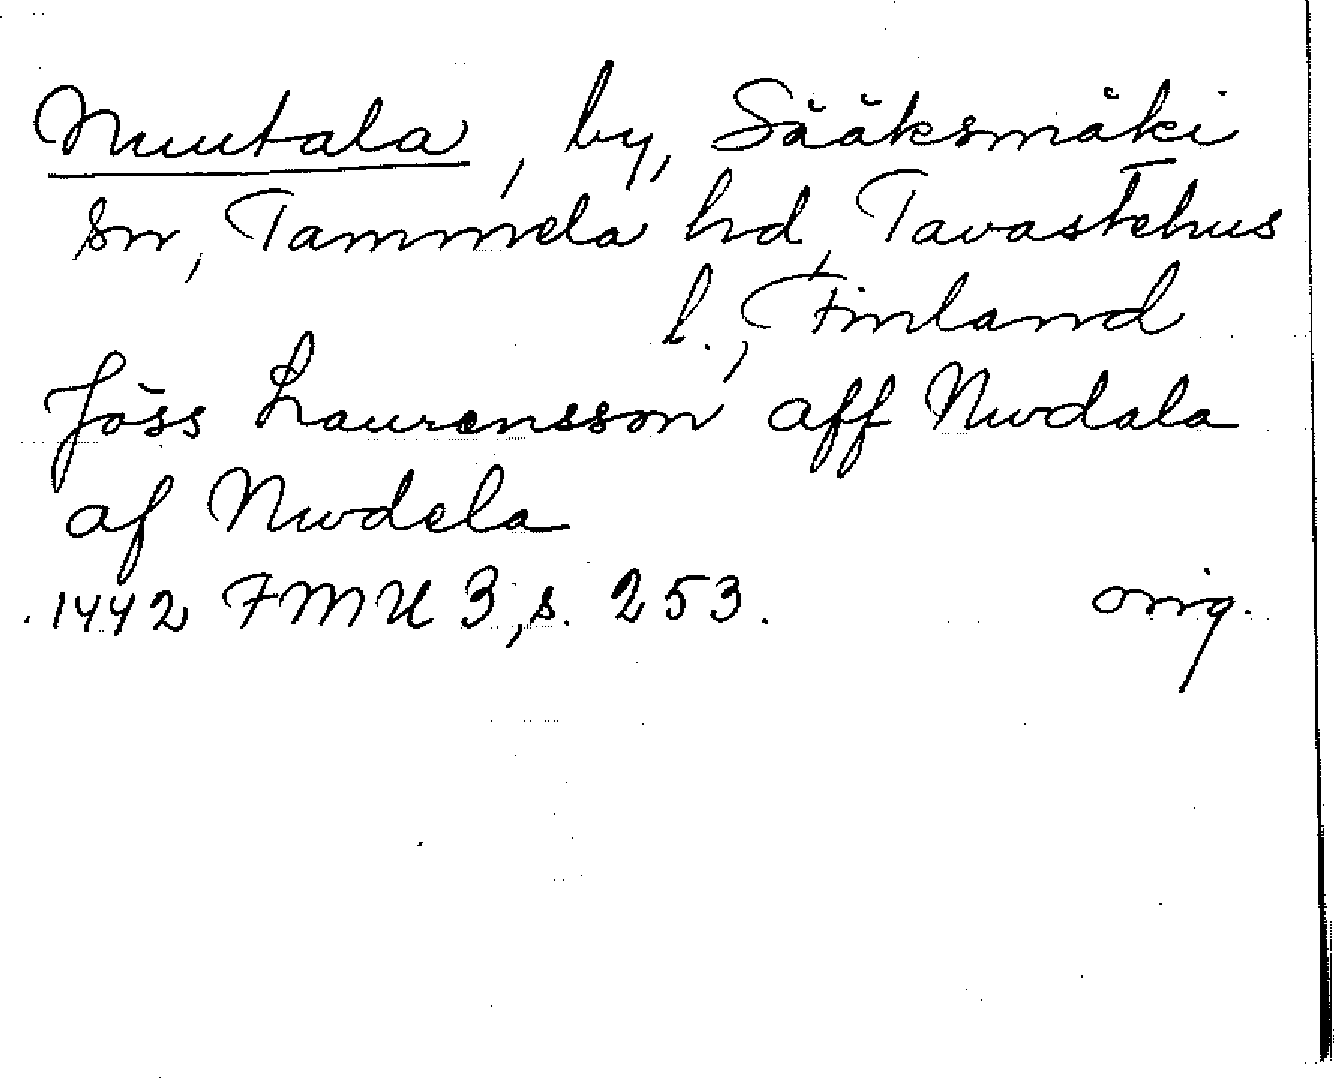 Nuutala, by, Sääksmäki
sn, Tammela hd, Tavastehus
l., Finland
Jöss Laurensson aff Nwdala
af Nwdela
1442 FMU 3, s. 253. orig.